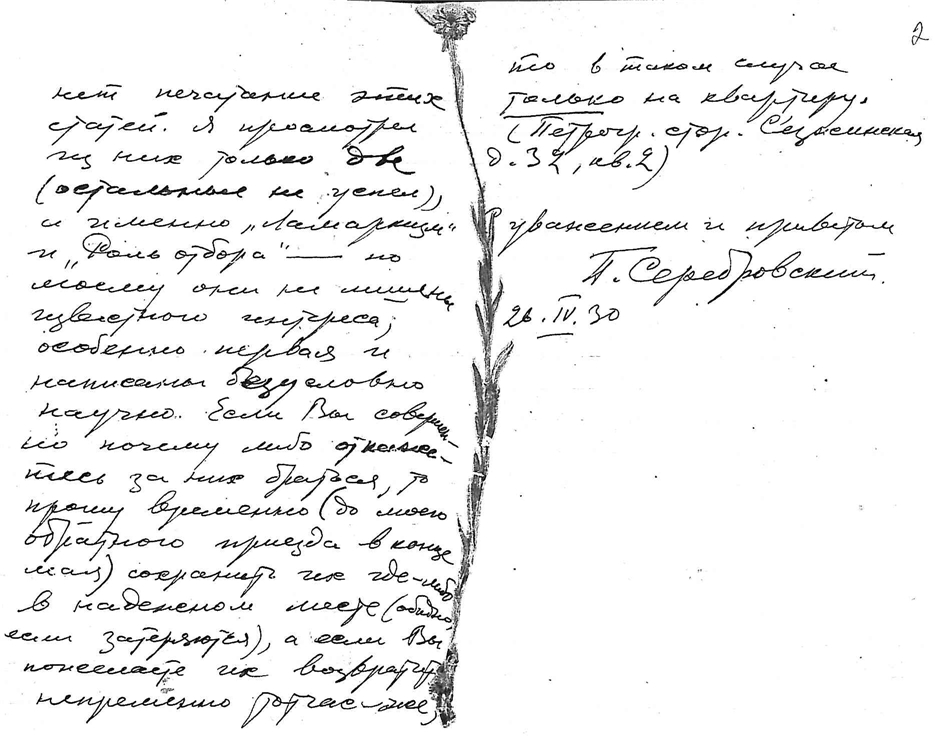 2
нет печатание этих
статей. Я просмотрел
из них только две
(остальные не успел),
а именно „Ламаркизм“
и „Роль отбора“ — по
моему они не лишены
известного интереса;
особенно первая и
написаны безусловно
научно. Если Вы совершен-
но почему либо откаже-
тесь за них браться, то
прошу временно (до моего
обратного приезда в конце
мая) сохранить их где-либо
в надежном месте (обидно,
если затеряются), а если Вы
пожелаете их возвратить
непременно тотчас-же,
то в таком случае
только на квартиру.
(Петрогр. стор. Сезжинская
д. 32, кв. 2)
С уважением и приветом
П. Серебровский.
26.IV.30